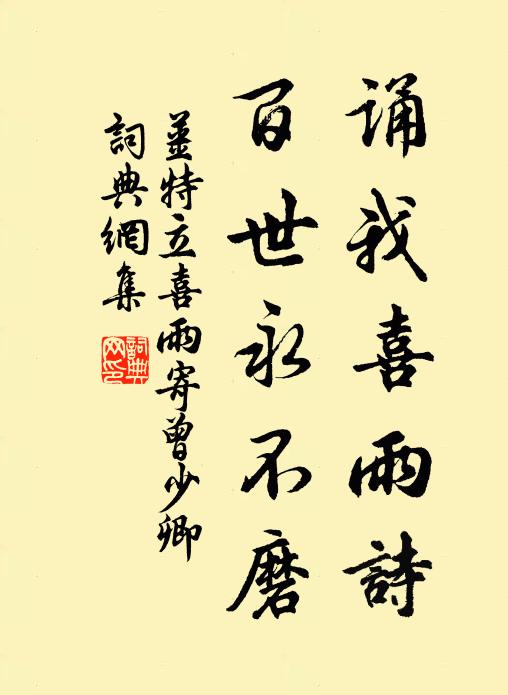 诵我喜雨詩
百世永不磨
姜特立喜雨寄曾少卿
詞典網集
詞典網印